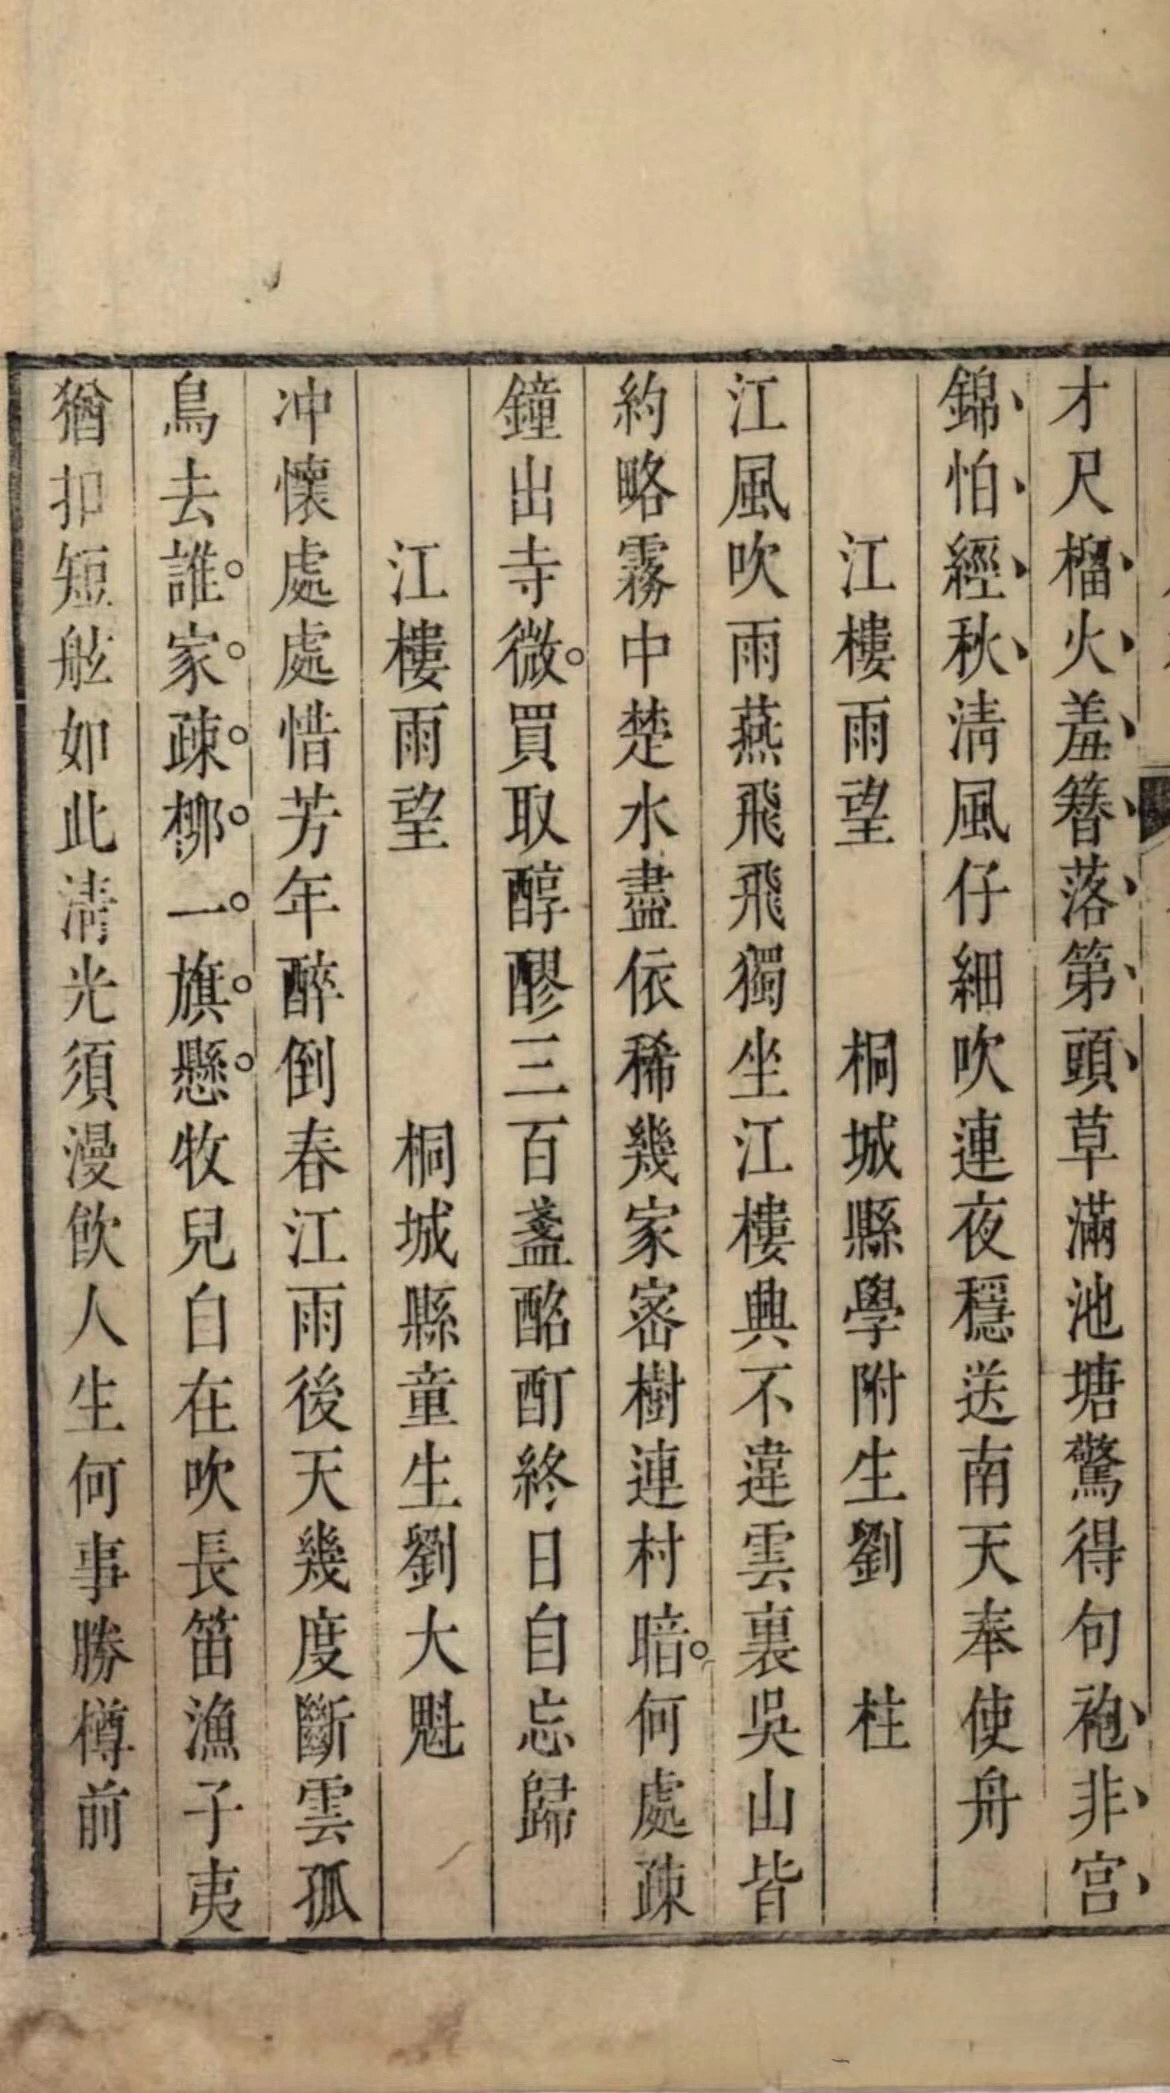 才尺榴火羞簪落第頭草滿池塘驚得句袍非宫
錦怕經秋淸風仔細吹連夜穩送南天奉使舟
江樓雨望　桐城縣學附生劉　柱
江風吹雨燕飛飛獨坐江樓興不違雲裏吳山皆
約略霧中楚水盡依稀幾家宻樹連村暗何處疎
鐘出寺微買取醇醪三百盞酩酊終日自忘歸
江樓雨望　桐城縣童生劉大魁
冲懷處處惜芳年醉倒春江雨後天幾度斷雲孤
鳥去誰家疎栁一旗懸牧兒自在吹長笛漁子夷
猶扣短舷如此淸光須漫飲人生何事勝樽前